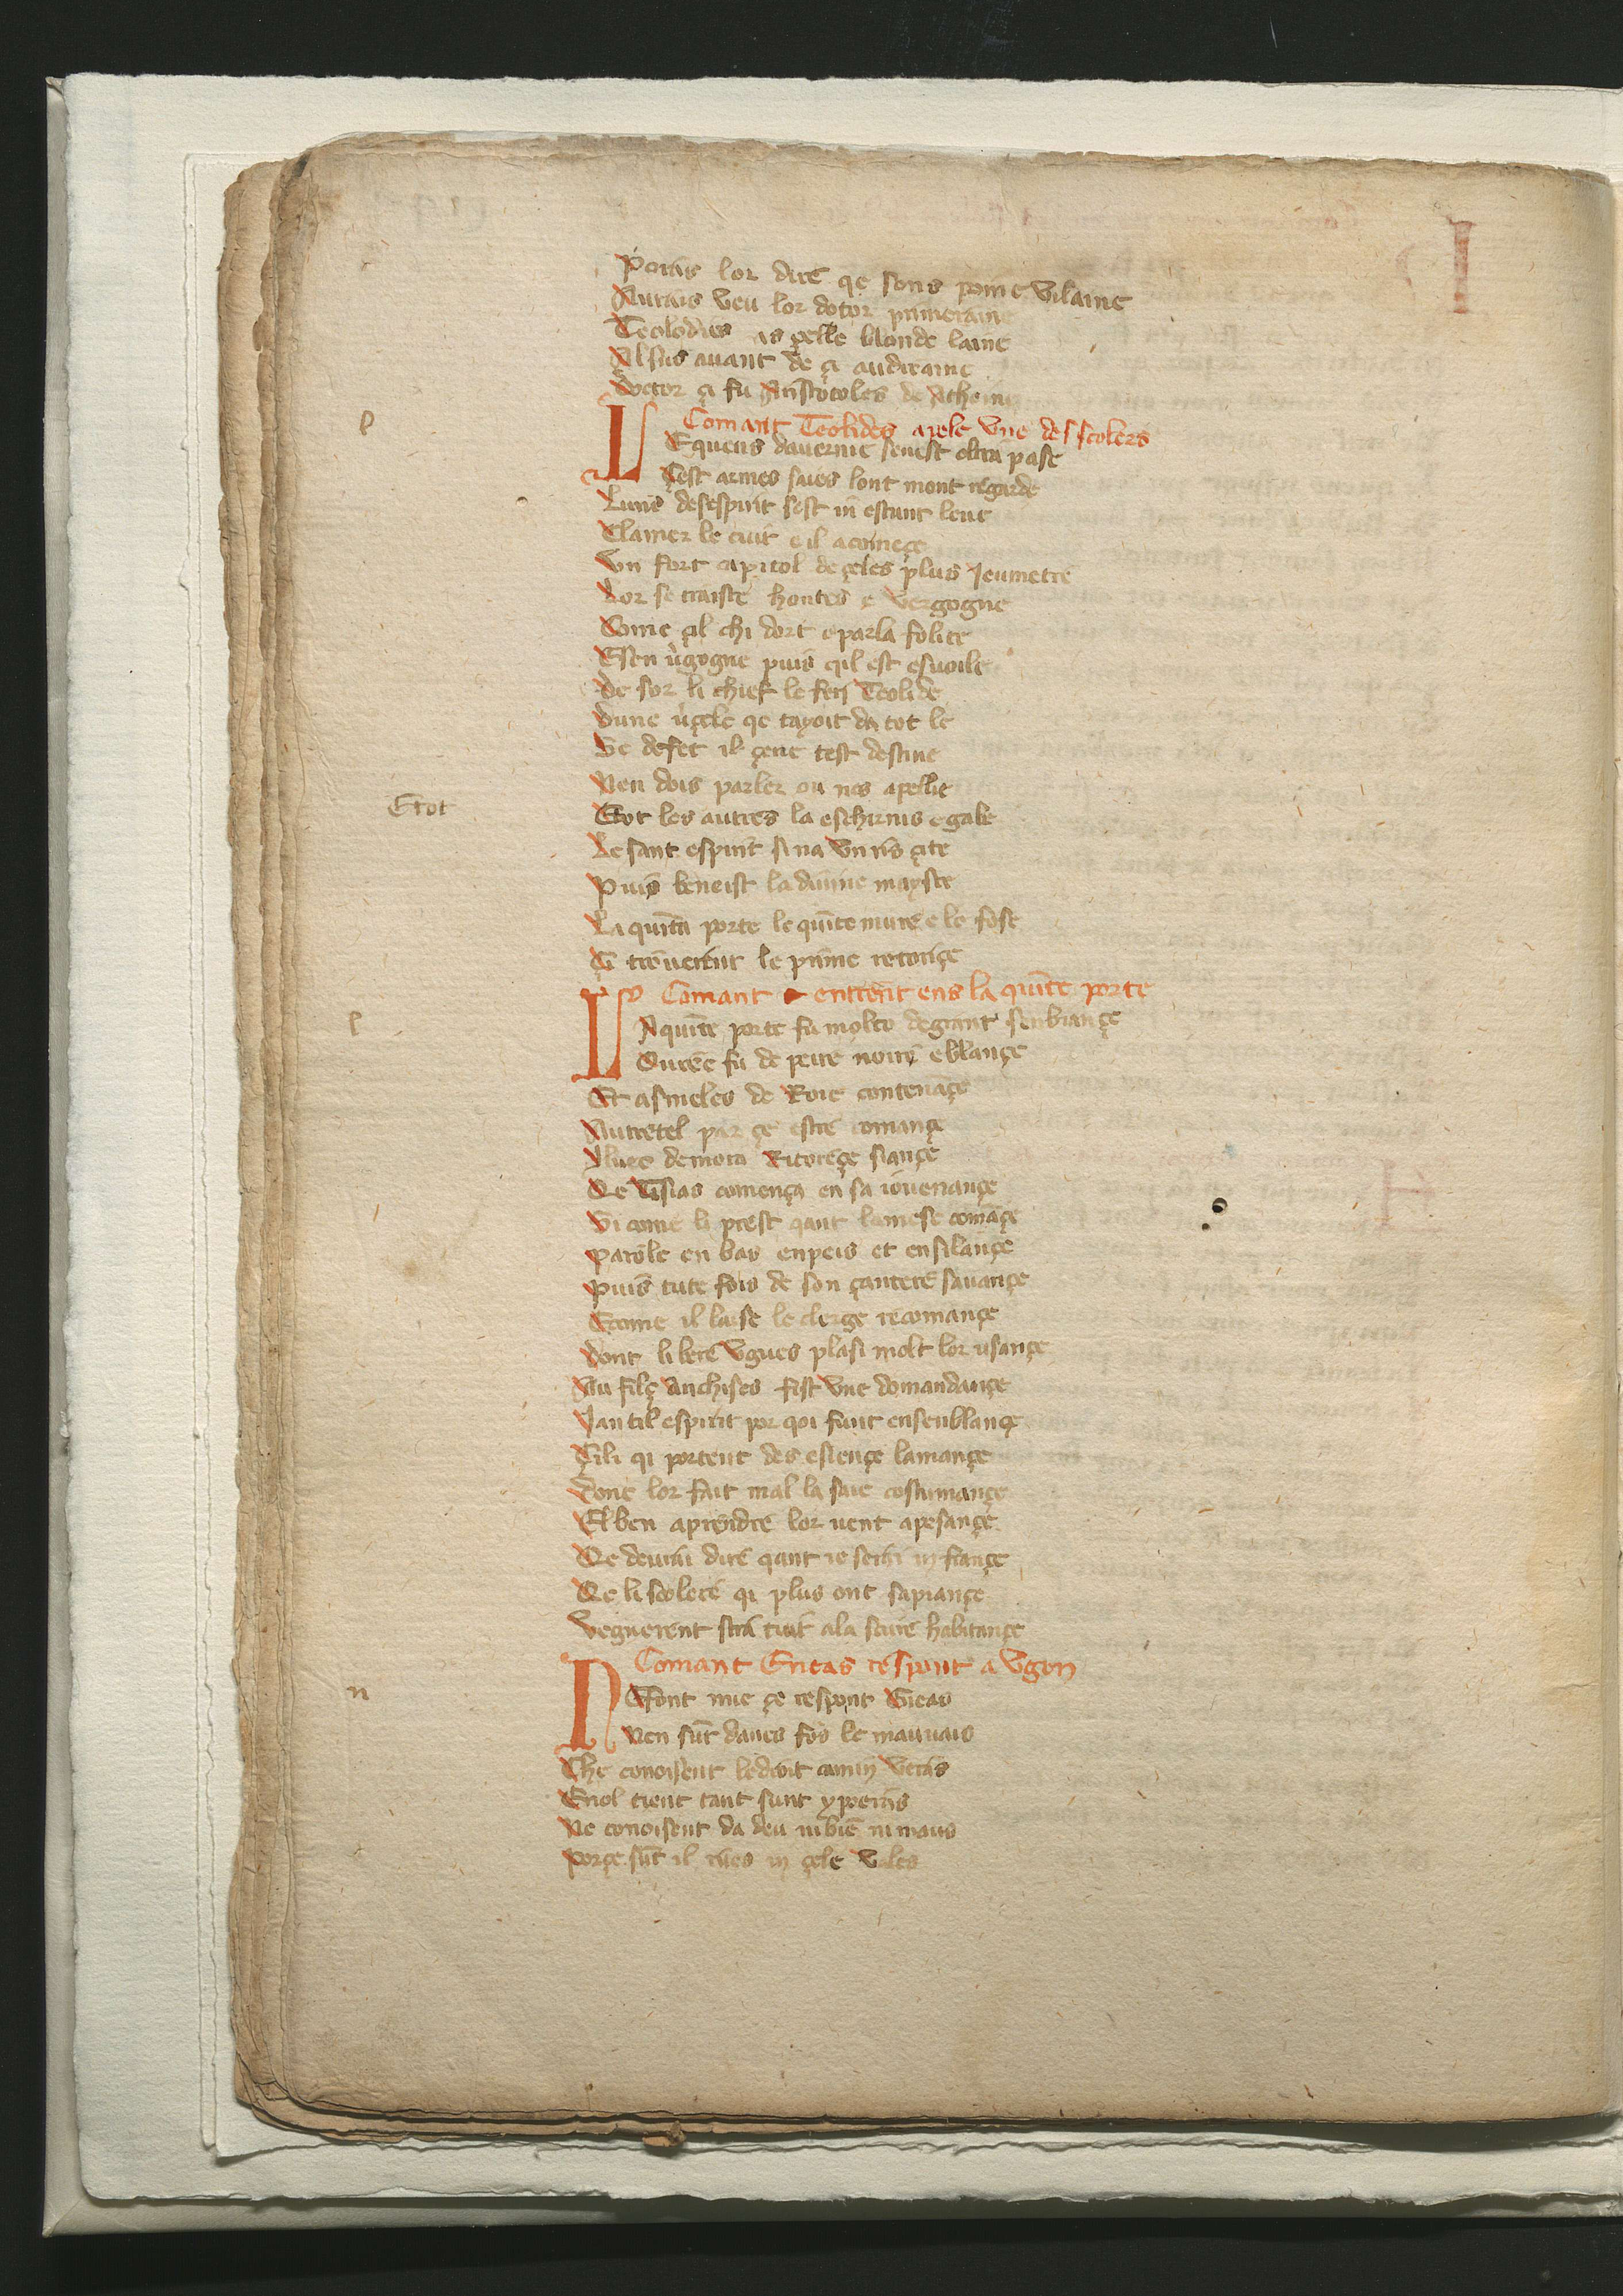 Poras lor dire qe sens poine vilaine
Aurais veu lor dotor primeraine
Teolodies as pelle blonde laine
Alsus auant de ça audiraine
Doctor çi fu Aristotoles de Atheine
Comant Teolides apele vne des scolers
l
LEquens dauernie senest oltra pase
Cest armes saies lont mont regarde
Luns desespirit sest in estant leue
Clamer le cuit e il a começe
Vn fort capitol de çeles plus Jeumetre
Lor se traiste hontes e vergogne
Come çil chi dort e parla folite
Esen ugogne puis qil est esuoile
De sor li chief le feri Teolide
Dune uçele qe tayoit da tot le
Se defet il çene test destine
Nen dois parler ou nes apelle
Etot
Etot les autres la eschirnis e gabe
Le sant espirit si na vn ris çite
Puis beneist la diuine mayste
La quinta porte le quinte mure e le fose
E treuerent le prime retonçe
Comant entrent ens la quinte porte
l
LAquinte porte fu molto de grant senbiançe
Ouree fu de peire noire e blançe
Et asmeles de Roie contenançe
Autretel par çe estre comançe
Ilues demora Ritoreçe siançe
Qe Tisias comença en sa iouenançe
Si come li prest qant la mese comançe
Parole en bas enpeis et en silançe
Puis tute fois de son çantere sauançe
Ecome il laise le clerge recomançe
Dont li bere Vgues plasi molt lor usançe
Au filç Anchises fist vne domandançe
Jantil espirit por qoi funt ensenblançe
Cili qi portent des esiençe lamançe
Done lor fait mal la saie costumançe
El ben aprendre lor uent apesançe
Qe deurai dire qant ie serai in françe
Qe li scolere qi plus ont sapiançe
Vegnerent stra tuit ala scure habitançe
Comant Eneas respont a Vgon
n
NEfont mie çe respont Eneas
Nen sunt daues fos le mauuais
Che conoisent le droit camin veras
Enol tient tant sunt ypocras
Ne conoisent da deu ni bien ni maus
Porçe sunt il mes in çele vales